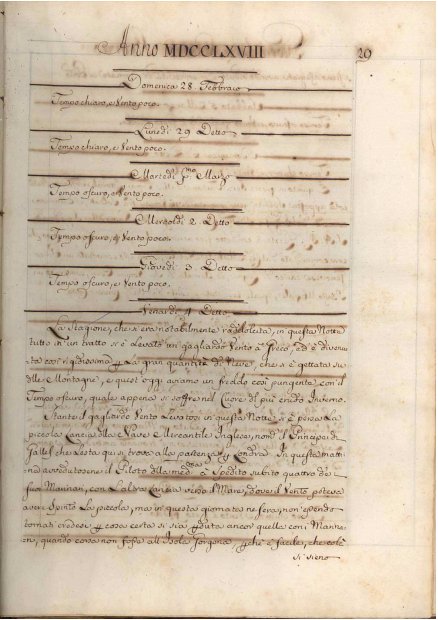 Anno MDCCLXVIII
29
Domenica 28 Febbraio
Tempo chiaro, e Vento poco.
Lunedì 29 Detto
Tempo chiaro, e Vento poco.
Martedì p.mo Marzo
Tempo oscuro, e Vento poco.
Mercoldì 2 Detto
Tempo oscuro, e Vento poco.
Giovedì 3 Detto
Tempo oscuro, e Vento poco.
Venardì 4 Detto
La stagione, che si era notabilmente radolcita, in questa Notte
tutto in un tratto si è Levato un gagliardo Vento Greco, ed è divenu-
ta così rigidissima La gran quantità di Neve, che si è gettata su
delle Montagne, e quest'oggi aviamo un freddo così pungente con il
Tempo oscuro, quale appena si soffre nel Cuore del più crudo Inverno.
Stante il gagliardo Vento Levatosi in questa Notte si è persa La
piccola Lancia della Nave Mercantile Inglese, nom. il Principe di
che resta qui si trova alla partenza Londra. In questa matti-
na avvedutosene il Piloto della med. à Spedito subito quattro de
suoi Marinari, con L'altra Lancia verso il Mare, dove il Vento poteva
avere Spinto La piccola, ma in questa giornata ne sera, non essendo
tornati credesi cosa certa si sia perduta ancor quella con i Marina-
ri, quando cosa non fosse all'Isola Gorgona, che è facile, che colà
si sieno